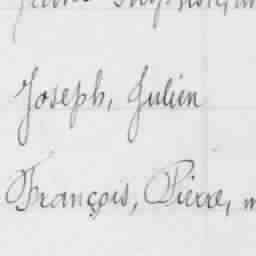 Joseph, Julien
François, Pierre,